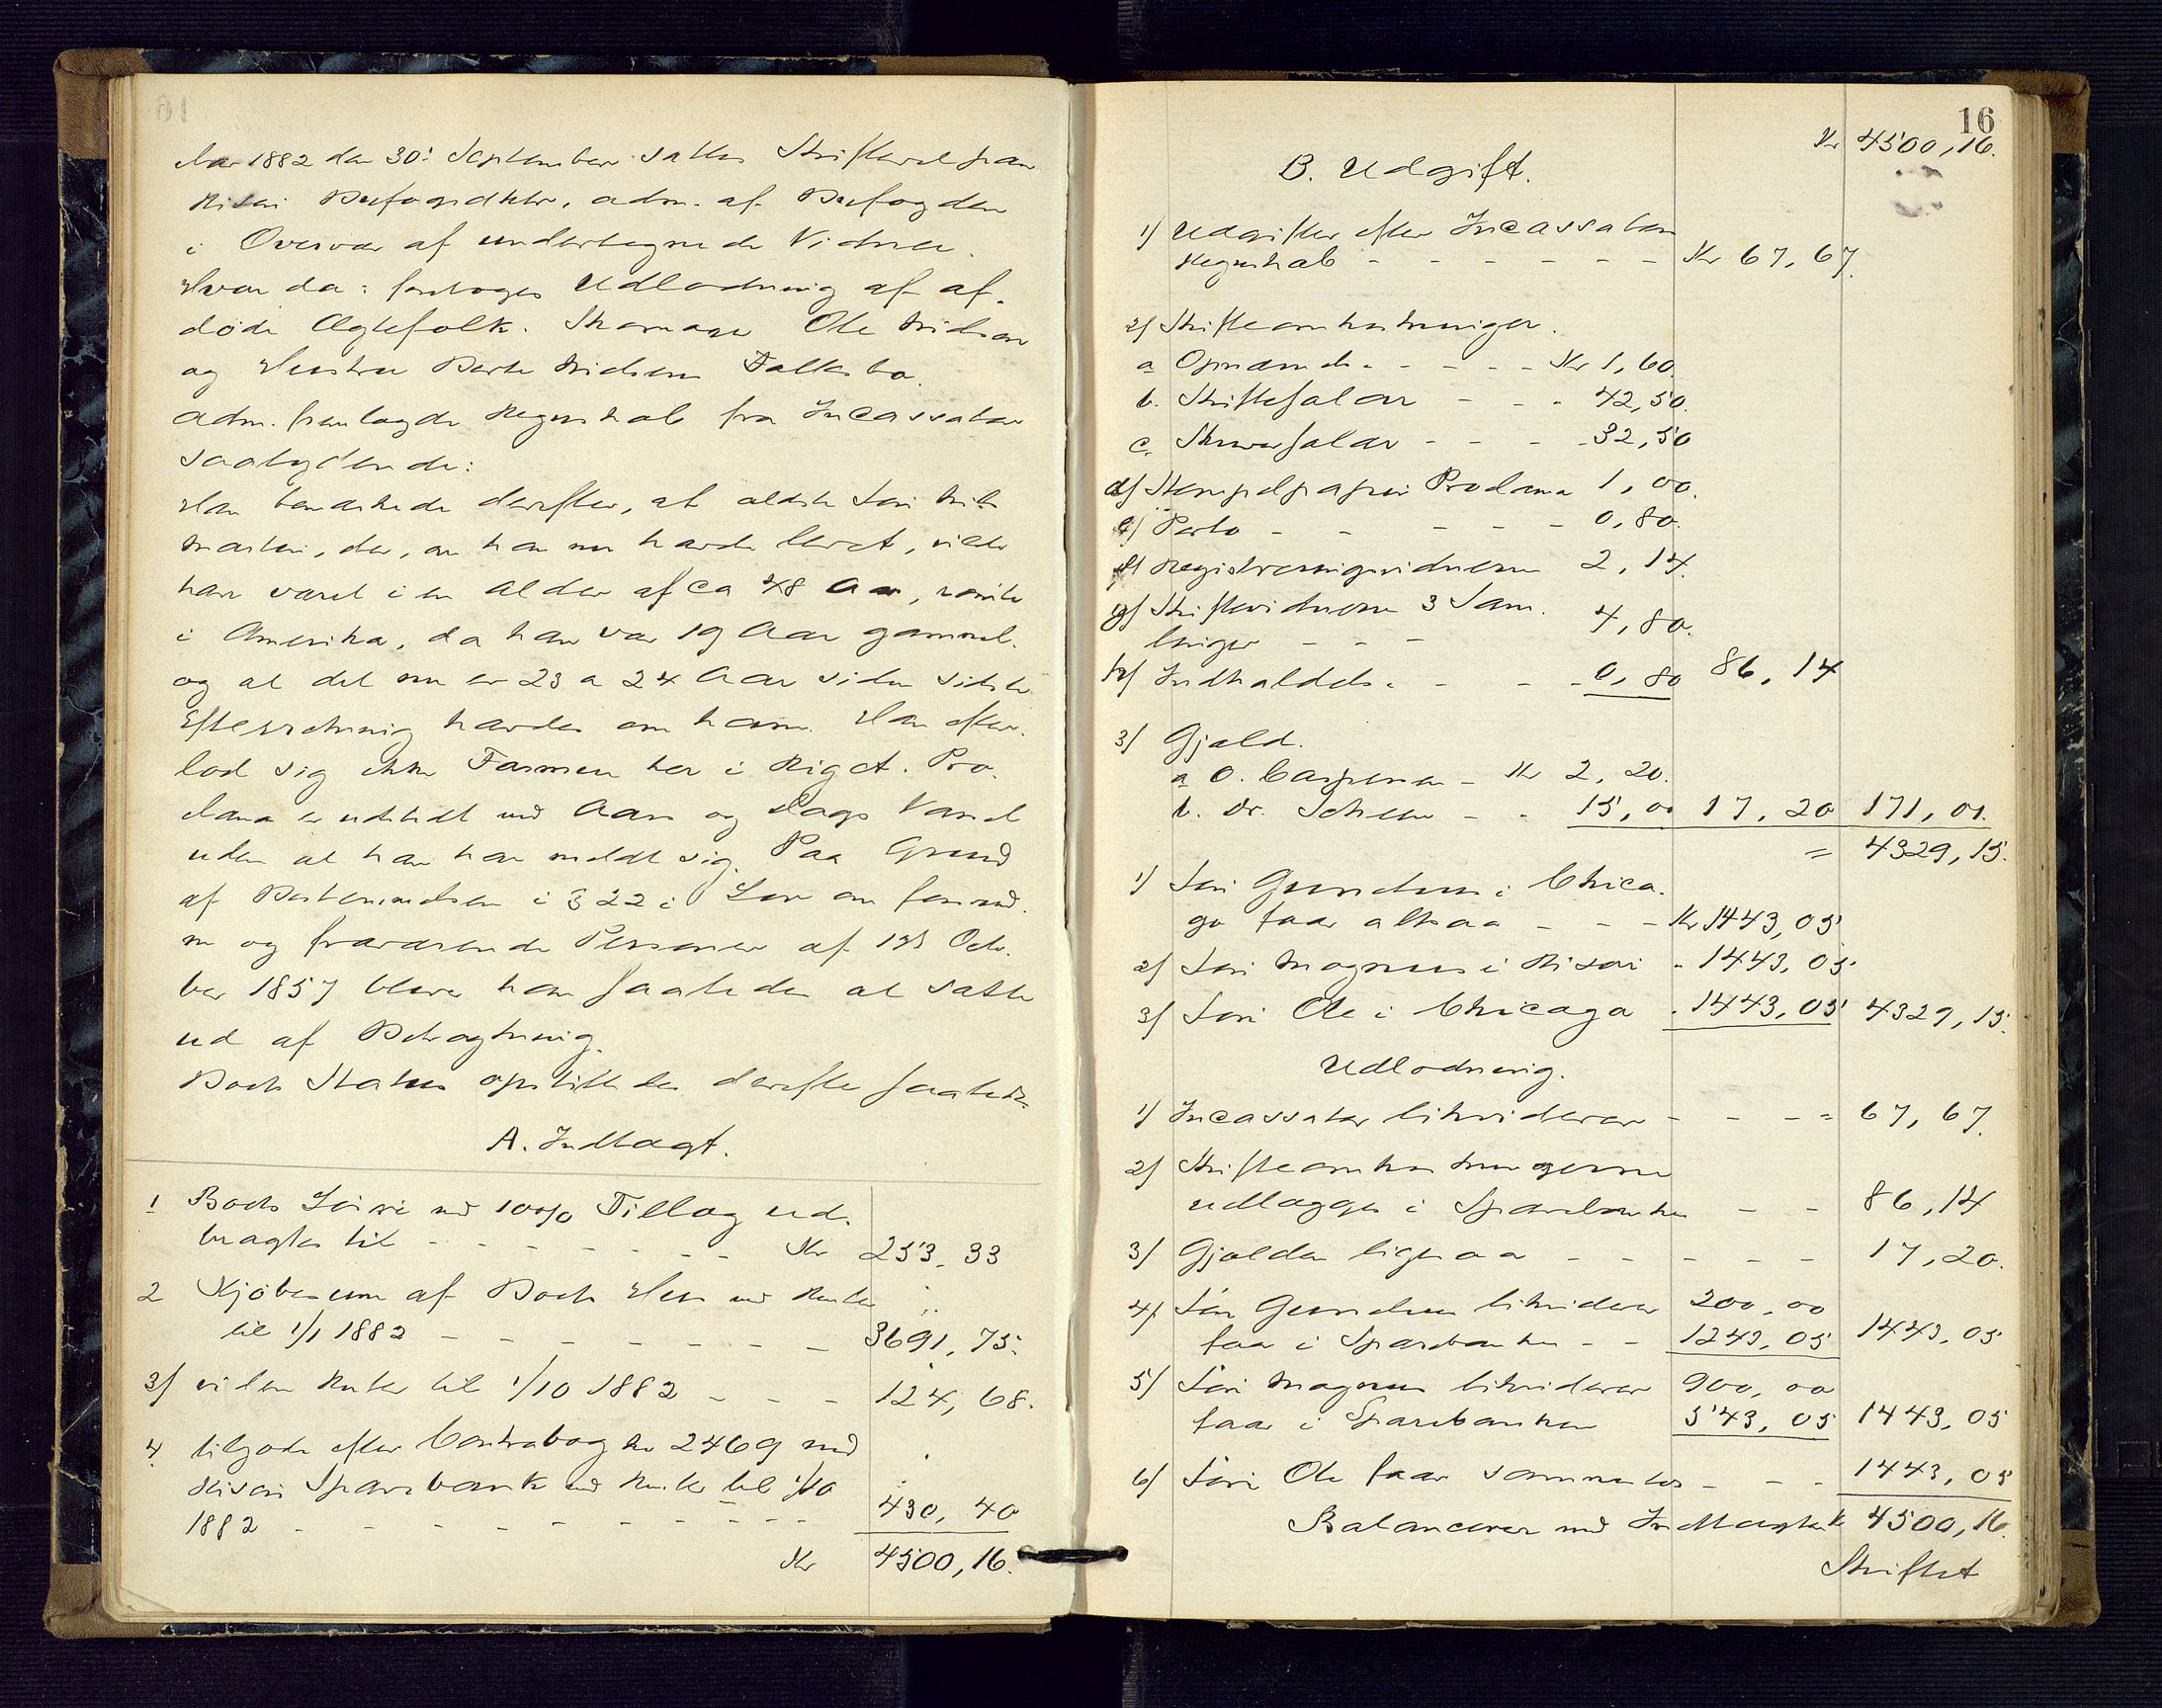 Aar 1882 den 30: September sattes Skifteret paa
Risør Byfogdktr. adm. af Byfogden
i Overvær af undertegnede Vidner.
Hvor da: foretoges Udlodning af af-
døde Ægtefolk. Ole Nielsen
og Hustru Berte Nielsens Fallesbo.
Adm. fremlagde Regnskab fra Incassator
saalydende:
Han bemærkede derefter, at ældste Søn Nils
Martin, der, om han nu havde levet, vilde
have været i en Alder af ca 48 Aar, reiste
i Amerika, da han var 19 Aar gammel.
og at det nu er 23 a 24 Aar siden sidste
Efterretning havdes om ham. Han efter-
lod sig ikke Formue her i Riget. Pro-
clama er udstedt med Aars og Dags Varsel
uden at han har meldt sig. Paa Grund
af Bestemmelsen i § 22 i Lov om forsvund-
ne og fraværende Personer af 12 Octo-
ber 1857 blive han saaledes at sætte
ud af Betragtning.
Boets Status opstilledes derefter saaledes
A. Indtægt.
1 Boets Løsøre med 10 % Tillæg ud-
bragtes til - - - - - - - Kr 253,33
2 Kjøbesum af Boets Hus med Renter
til 1/1 1882 - - - - - - - 3691,75.
3) videre Renter til 1/10 1882 - - - 124,68.
4 tilgode efter Contrabog No 2469 med
Risør Sparebank med Renter til 1/10
1882 - - - - - - - - - 430,40
Kr 4500,16.
16
Kr 4500,16.
B. Udgift.
1) Udgifter efter Incassators
Regnskab - - - - - - Kr 67,67.
2) Skifteomkostninger.
a Opnævnels. - - - - Kr 1,60.
b. Skiftesalær - - - 42,50.
c. Skriversalær - - - - 32,50
d) Stempelpapir Proclama 1,00.
e) Porto - - - - - 0,80.
f) Registreringsvidnerne 2,14.
g) Skiftevidnerne 3 Sam-
linger - - - 4,80.
h) Indkaldels. - - - 0,80 86,14
3) Gjæld.
a O. Caspersen - Kr 2,20.
b. Dr. - - 15,00 17,20 171,01.
= 4329,15.
1) Søn Gundersen i Chica-
go faar altsaa - - - Kr 1443,05
2) Søn Magnus i Risør - 1443,05.
3) Søn Ole i Chicago - 1443,05 4329,15.
Udlodning.
1) Incassator likviderer - - - = 67,67.
2) Skifteomkostningerne
udlægges i Sparebanken - - 86,14
3) Gjælden ligesaa - - - - - 17,20.
4) Søn likviderer 200,00
faar i Sparebanken - - 1243,05 1443,05
5) Søn Magnus likviderer 900,00
faar i Sparebanken 543,05 1443,05
6) Søn Ole faar sammesteds - - - 1443,05
Balancerer med Indtægten Kr 4500,16.
Skiftet